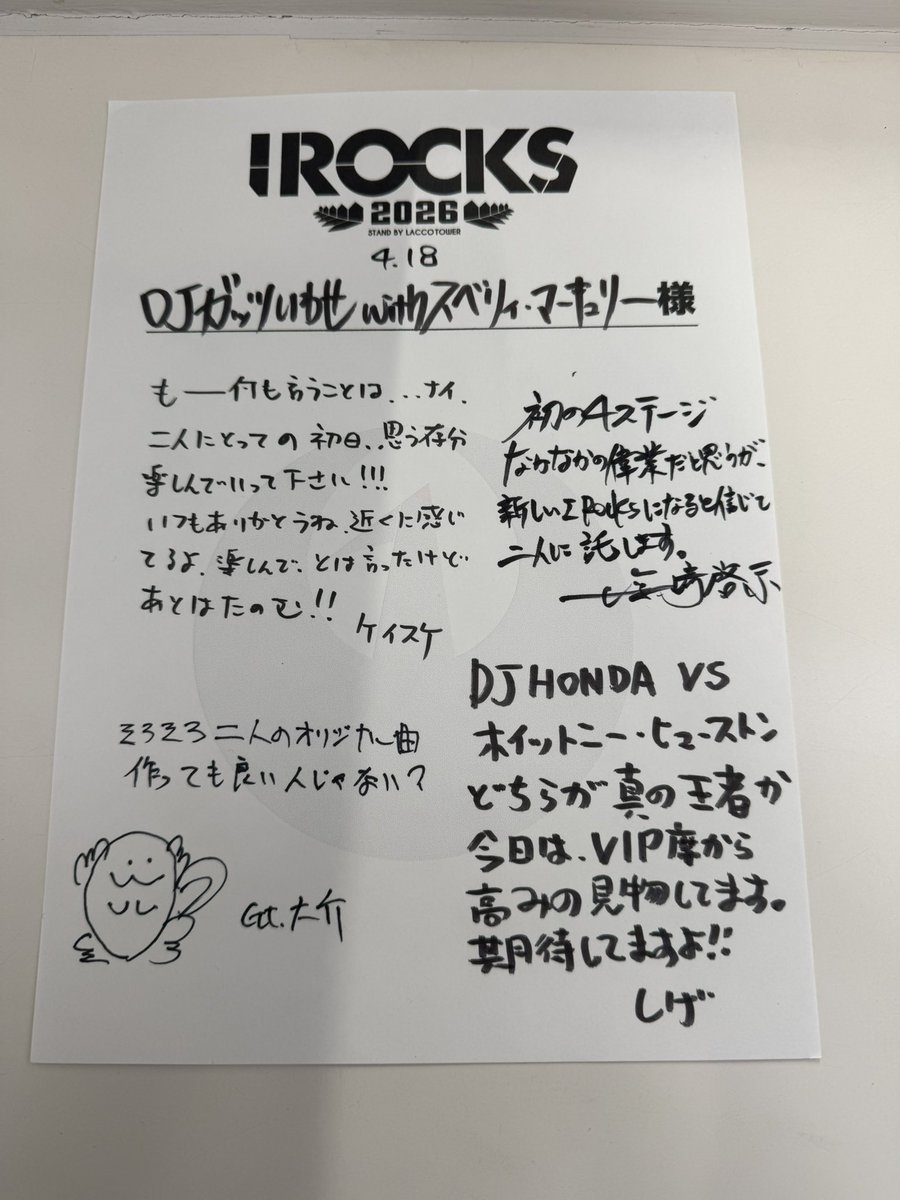 IROCKS
2026
STAND BY LACCO TOWER
4.18
DJガッツいわせ withスベリィ・マーキュリー様
もー何も言うことは...ナイ.
二人にとっての初日、思う存分
楽しんでいって下さい!!!
いつもありがとうね、近くに感じ
てるよ、楽しんで、とは言ったけど
あとはたのむ!!
ケイスケ
初の4ステージ
なかなかの偉業だと思うが、
新しいI ROCKSになると信じて
二人に託します。
塩﨑啓示
そろそろ二人のオリジナル曲
作っても良い人じゃない?
Gt.大介
DJ HONDA VS
ホイットニー・ヒューストン
どちらが真の王者か
今日は、VIP席から
高みの見物してます。
期待してますよ!!
しげ